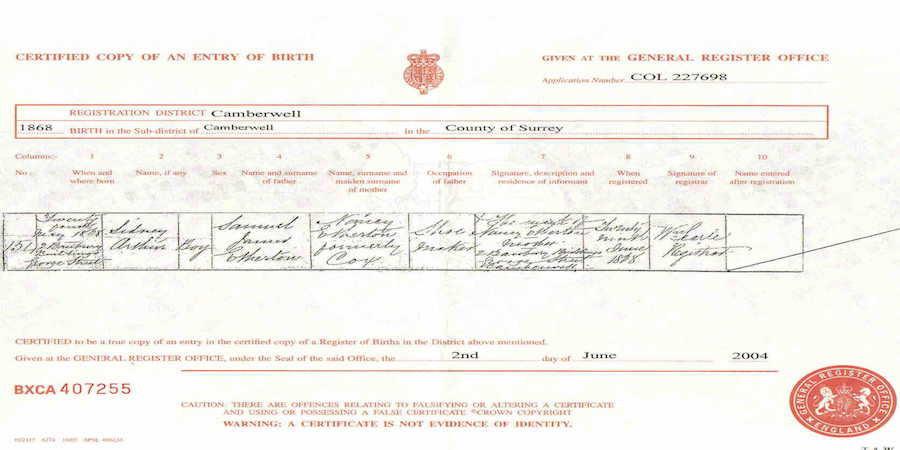 CERTIFIED COPY OF AN ENTRY OF BIRTH
GIVEN AT THE GENERAL REGISTER OFFICE
Application Number COL 227698
REGISTRATION DISTRICT Camberwell
1868 BIRTH in the Sub-district of Camberwell in the County of Surrey
Columns:- 1 2 3 4 5 6 7 8 9 10
No. When and where born Name, if any Sex Name and surname of father Name, surname and maiden surname of mother Occupation of father Signature, description and residence of informant When registered Signature of registrar Name entered after registration
May 1868
George Street
Sidney
Arthur
Boy
Samuel
James
Etherton
Nancy
Etherton
formerly
Cox
Shoe
maker
X The mark of
Nancy Etherton
Mother
George Street
Camberwell
June
1868
Registrar
CERTIFIED to be a true copy of an entry in the certified copy of a Register of Births in the District above mentioned.
Given at the GENERAL REGISTER OFFICE, under the Seal of the said Office, the 2nd day of June 2004
BXCA 407255
CAUTION: THERE ARE OFFENCES RELATING TO FALSIFYING OR ALTERING A CERTIFICATE
AND USING OR POSSESSING A FALSE CERTIFICATE ©CROWN COPYRIGHT
WARNING: A CERTIFICATE IS NOT EVIDENCE OF IDENTITY.
GENERAL REGISTER OFFICE
ENGLAND